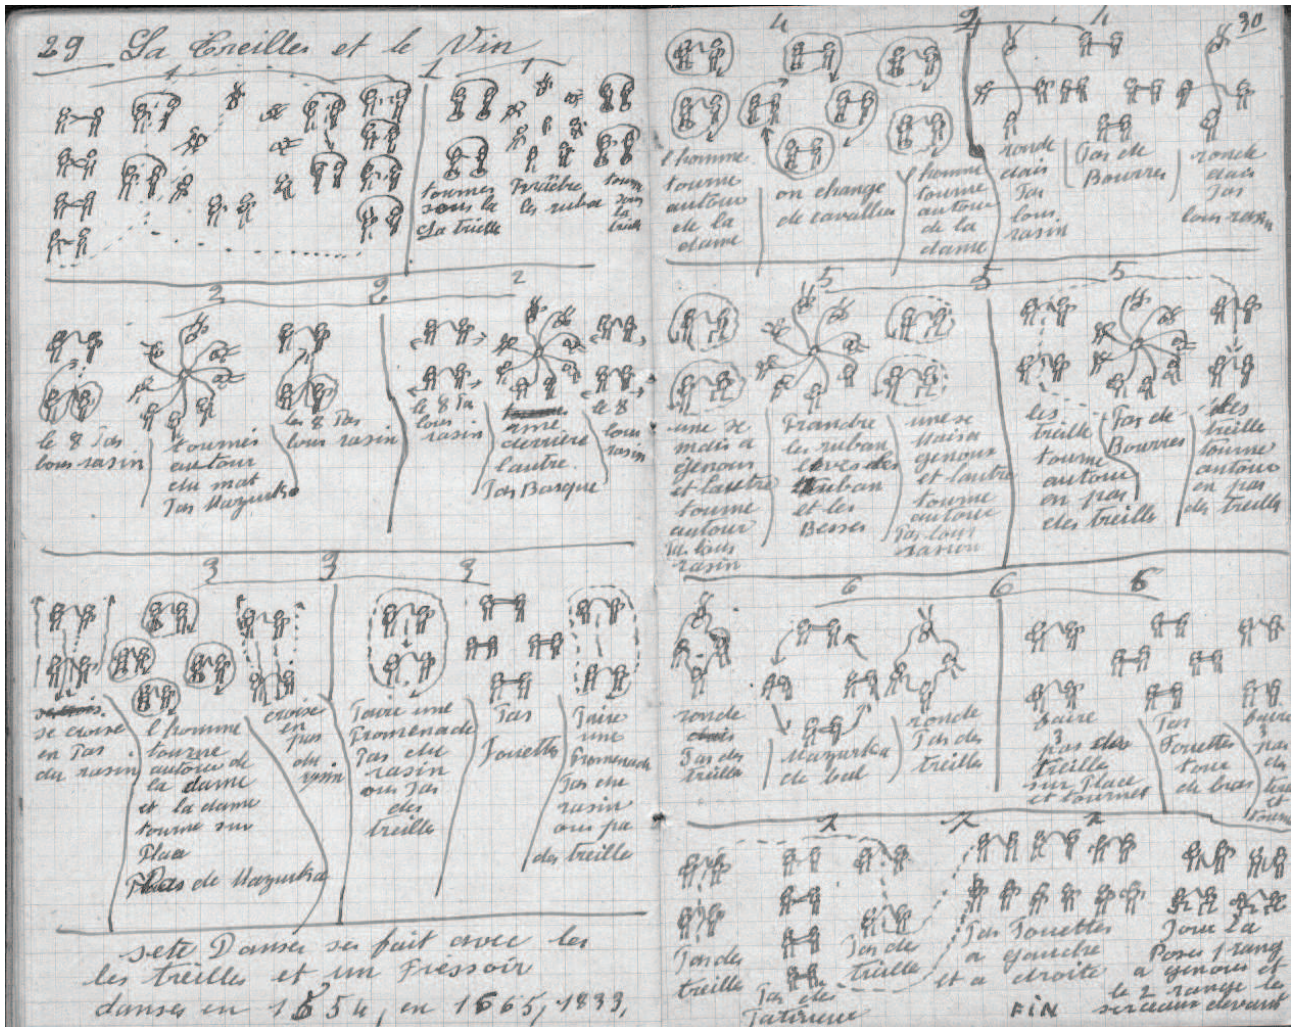 29 La Treilles et le Vin
1 1 1
tournes
sous la
La trielle
les ruba
sous
la
2 2 2
le 8 Pas
lous rasin
tournés
autour
du mat
Pas Mazurka
les 8 Pas
lous rasin
le 8 Pa
lous
rasin
derrière
l'autre.
Pas Basque
le 8
lous
rasin
3 3 3
se croise
en Pas
du rasin
l'homme
tourne
autour de
la dame
et la dame
tourne sur
Place
Pas de Mazurka
croise
en
pas
du
rasin
Faire une
Promenade
Pas du
rasin
ou Pas
des
treille
Pas
Fouettes
Faire
une
Promenade
Pas du
rasin
ou pa
des treille
sete Danse se fait avec les
les treille et un Pressoir
danses en 1554, en 1665, 1833,
30
4 4 4
l'homme
tourne
autour
de la
dame
on change
de cavallier
l'homme
tourne
autour
de la
dame
ronde
dais
Pas
lous
rasin
Pas de
Bourres
ronde
dais
Pas
lous rasin
5 5 5
une se
mais a
genous
et l'autre
tourne
autour
Pas lous
rasin
Prandre
les ruban
leves les
ruban
et les
Besses
une se
mais a
genous
et l'autre
tourne
autour
Pas lous
rasin
les
treille
tourne
autour
en pas
des treille
Pas de
Bourres
des
treille
tourne
autour
en pas
des treille
6 6 6
ronde
Pas des
treille
Mazurka
de bal
ronde
Pas des
treille
faire
3
pas des
treille
sur Place
et tournes
Pas
Fouettes
tour
de bras
faire
3
pas
et
7 7 7
Pas des
treille
Pas des
Pas de
treille
Pas Fouettes
a gauche
et a droite
Pour la
Poses 1 rang
a genous et
le 2 range les
serceaux devant
FIN